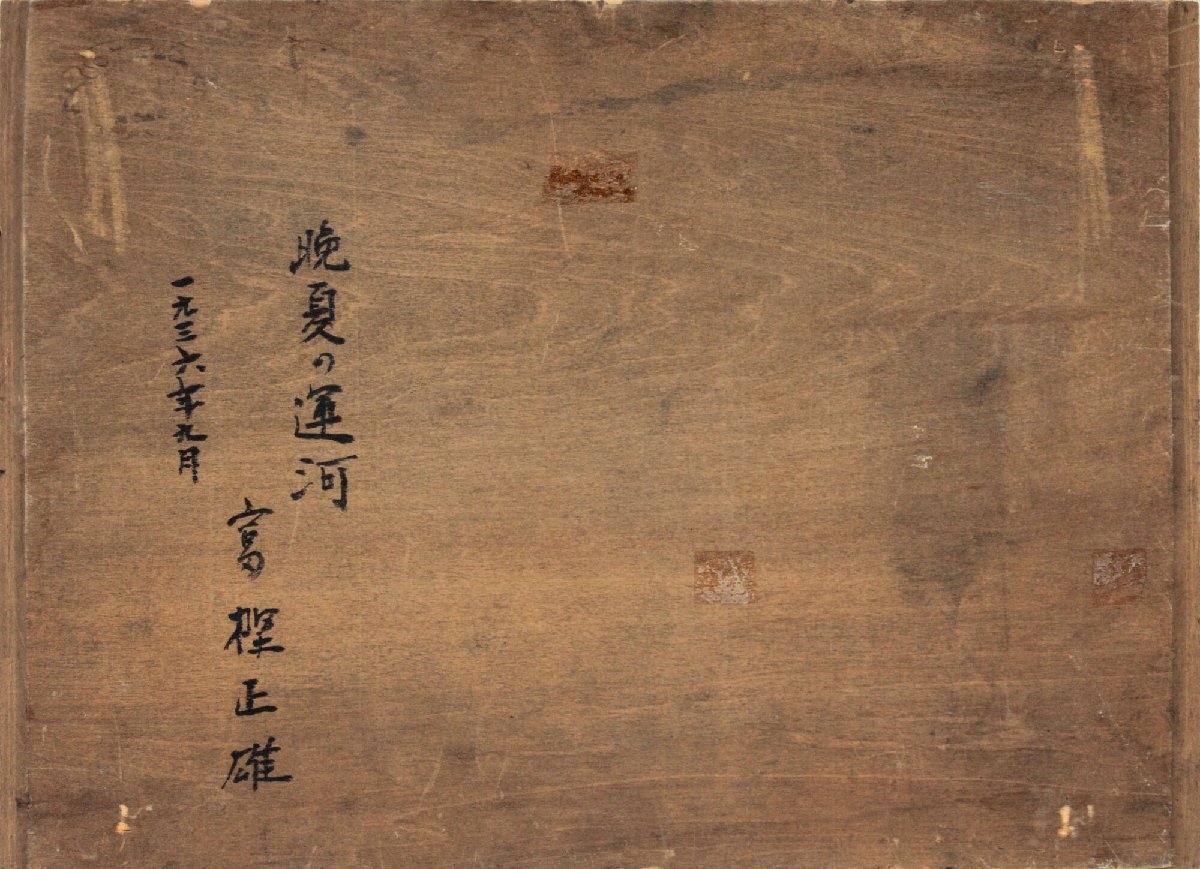 晩夏の運河
富樫正雄
一九三六年九月